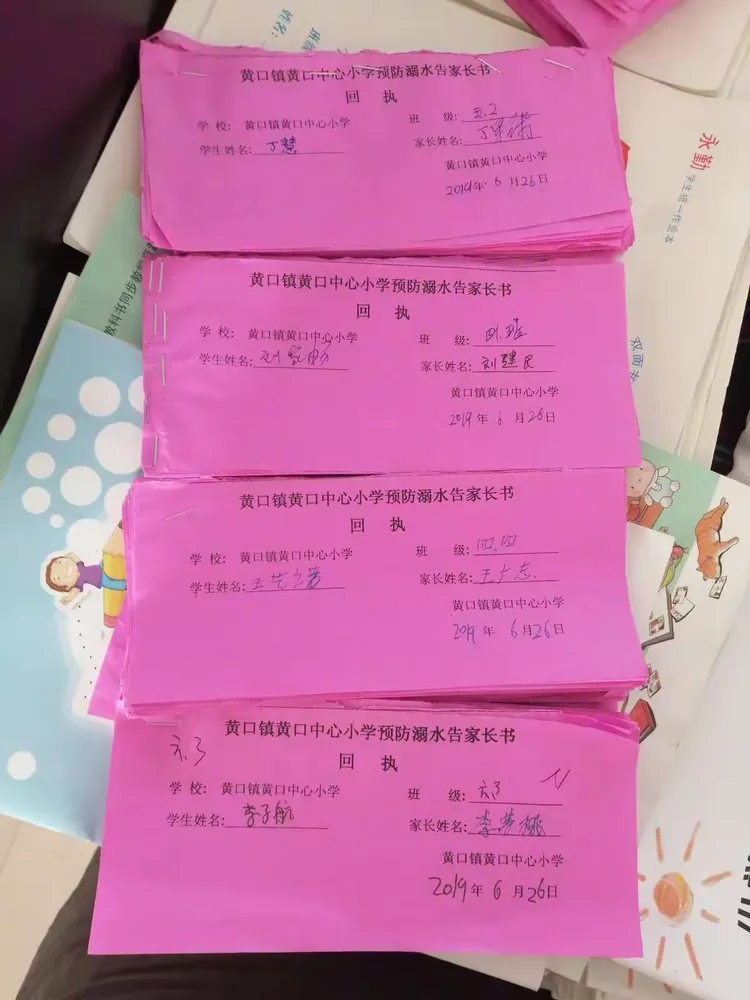 黄口镇黄口中心小学预防溺水告家长书
回 执
学 校: 黄口镇黄口中心小学 班 级: 五.2
学生姓名: 丁慧 家长姓名: 丁
黄口镇黄口中心小学
2019年 6 月26日
黄口镇黄口中心小学预防溺水告家长书
回 执
学 校: 黄口镇黄口中心小学 班 级:
学生姓名: 刘 家长姓名: 刘建民
黄口镇黄口中心小学
2019年 6 月26日
黄口镇黄口中心小学预防溺水告家长书
回 执
学 校: 黄口镇黄口中心小学 班 级: 四.四
学生姓名: 王艺 家长姓名: 王广志
黄口镇黄口中心小学
2019年 6月26日
黄口镇黄口中心小学预防溺水告家长书
六.3
回 执
学 校: 黄口镇黄口中心小学 班 级: 六3
学生姓名: 李子航 家长姓名: 李
黄口镇黄口中心小学
2019年 6 月26日
永勤
学生统一作业本
双面
教科书同步教学
姓名: